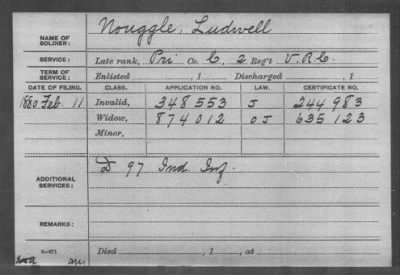 Nouggle, Ludwell
NAME OF SOLDIER:
SERVICE: Late rank, Pri Co. C, 2 Reg't V.R.C.
TERM OF SERVICE: Enlisted , 1 Discharged , 1
DATE OF FILING. CLASS. APPLICATION NO. LAW. CERTIFICATE NO.
1880 Feb. 11 Invalid, 348553 J 244983
Widow, 874012 OJ 635123
Minor,
ADDITIONAL SERVICES: D 97 Ind. Inf.
REMARKS:
Died , 1 , at